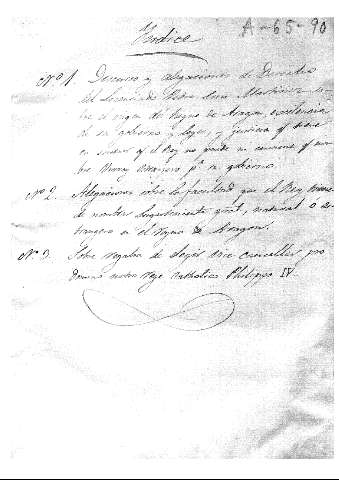 Yndice
A-65-90
Nº 1. Discurso y alegaciones de Derecho
del Licenciado Pedro Luis Martinez so-
bre el origen del Reyno de Aragon, excelencia
de su gobierno y leyes, y justicia qe tiene
en q el Rey no puede nom
brar Virrey estrangero pª su gobierno.
Nº 2. Alegaciones sobre la facultad que el Rey tiene
de nombrar Lugarteniente gral, natural ó es-
trangero en el Reyno de Aragon.
Nº 3. Sobre regalia de
Domino nostro Rege Catholico Philippo IV.